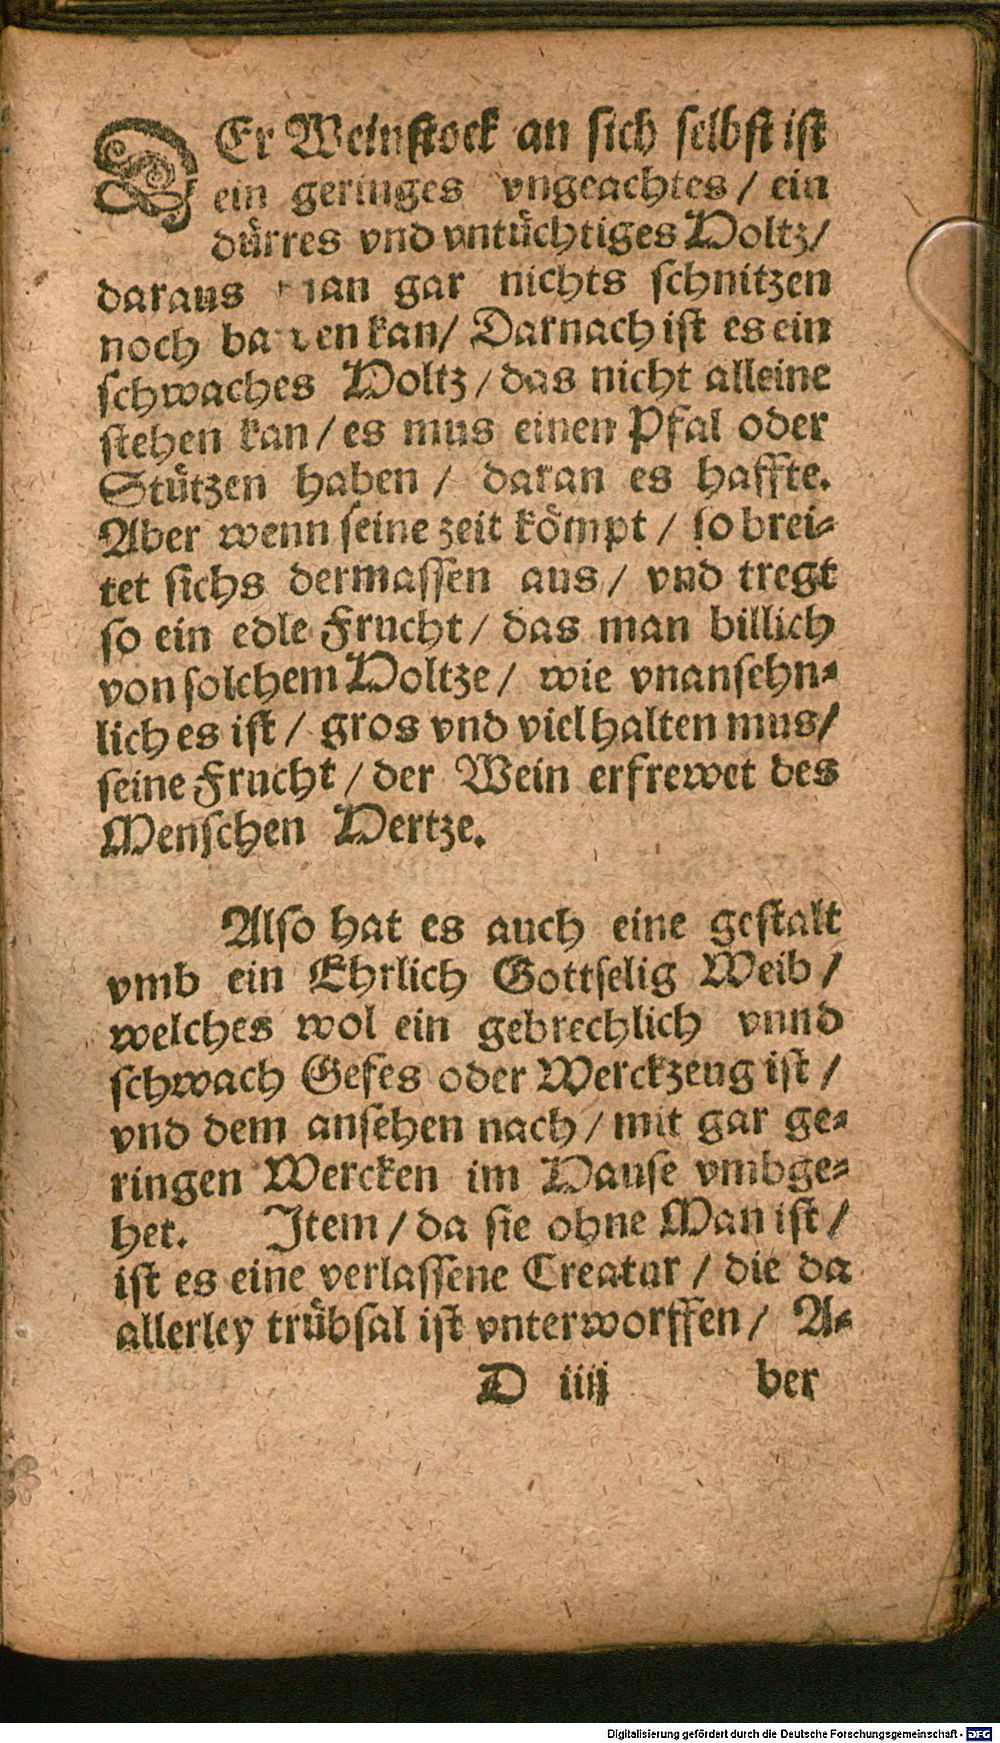 DEr Weinstock an sich selbst ist
ein geringes vngeachtes / ein
dürres vnd vntüchtiges Holtz /
daraus man gar nichts schnitzen
noch bawen kan / Darnach ist es ein
schwaches Holtz / das nicht alleine
stehen kan / es mus einen Pfal oder
Stützen haben / daran es haffte.
Aber wenn seine zeit kömpt / so brei-
tet sichs dermassen aus / vnd tregt
so ein edle Frucht / das man billich
von solchem Holtze / wie vnansehn-
lich es ist / gros vnd viel halten mus /
seine Frucht / der Wein erfrewet des
Menschen Hertze.
Also hat es auch eine gestalt
vmb ein Ehrlich Gottselig Weib /
welches wol ein gebrechlich vnnd
schwach Gefes oder Werckzeug ist /
vnd dem ansehen nach / mit gar ge-
ringen Wercken im Hause vmbge-
het. Item / da sie ohne Man ist /
ist es eine verlassene Creatur / die da
allerley trübsal ist vnterworffen / A-
D iiij ber
Digitalisierung gefördert durch die Deutsche Forschungsgemeinschaft - DFG